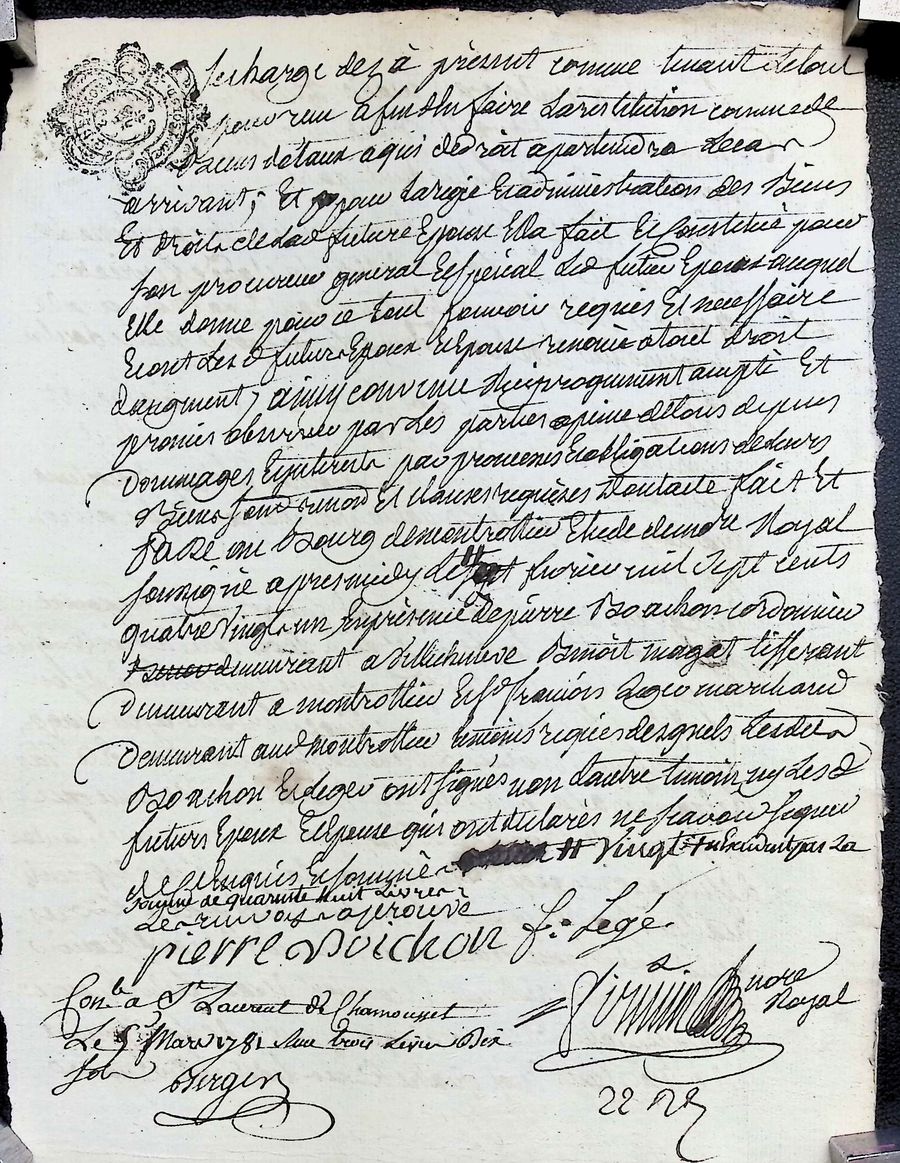 se charge dez à présent comme tenant le tout
pour reçu afin d'en faire la restitution comme de
biens dotaux a qui de droit apartiendra le cas
arrivant; Et pour la régie Et administration des Biens
Et droits de lad future Epouse Ella fait Et Constitué pour
son procureur general Et spécial led futur Epoux auquel
Elle donne pour ce tout pouvoir requis Et necessaire
Et ont lesd futurs Epoux Et Epouse renoncé a tout droit
daugment, ainsy convenu réciproquement accepté Et
promis observer par les parties a peine de tous depens
dommages Et interets par promesses Et obligations de leurs
Biens Et clauses requises Dont acte fait Et
Passé au bourg de montrottier Etude du nore Royal
soussigné apres midy le février mil sept cents
quatre vingt un En présence de pierre Boachon cordonnier
demeurant a Villechenève Benoit magat tisserant
demeurant a montrottier Et sr françois Leger marchand
demeurant aud montrottier temoins requis desquels lesdits
Boachon Et Leger ont signés non l'autre temoin ny les d
futurs Epoux Et Epouse qui ont declarés ne scavoir signer
de ce Enquis Et sommés vingt + n'Excedant pas La
somme de quarante huit Livres
Le renvois aprouvé
pierre Boichon f. Legé.
nore
Royal
Conlé a St Laurent de Chamousset
Le 5 Mars 1781 Reçu trois Livres Dix
sols
Berger
22